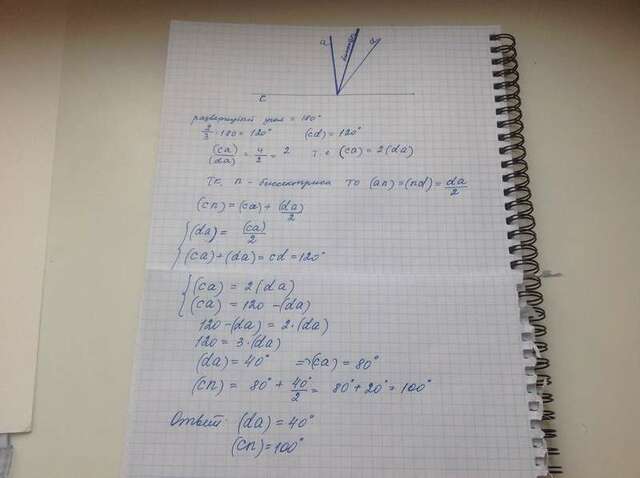 a биссектр. d
c
развернутый угол = 180°
2/3 · 180 = 120° (cd) = 120°
(ca)/(da) = 4/2 = 2 т.е (ca) = 2(da)
тк, n - биссектриса то (an) = (nd) = da/2
(cn) = (ca) + (da)/2
{ (da) = (ca)/2
(ca) + (da) = cd = 120°
{ (ca) = 2(da)
(ca) = 120 - (da)
120 - (da) = 2 · (da)
120 = 3 · (da)
(da) = 40° => (ca) = 80°
(cn) = 80° + 40°/2 = 80° + 20° = 100°
Ответ: (da) = 40°
(cn) = 100°